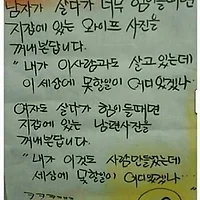 남자가 살다가 너무 힘이들때면
지갑에 있는 와이프 사진을
꺼내본답니다.
"내가 이사람과도 살고있는데
이 세상에 못할일이 어디있겠나…
여자도 살다가 힘이들때면
지갑에 있는 남편사진을
꺼내본답니다.
"내가 이것도 사람만들었는데…
세상에 못할일이 어디있겠나…
ㅋㅋㅋㅋㅋㅋ